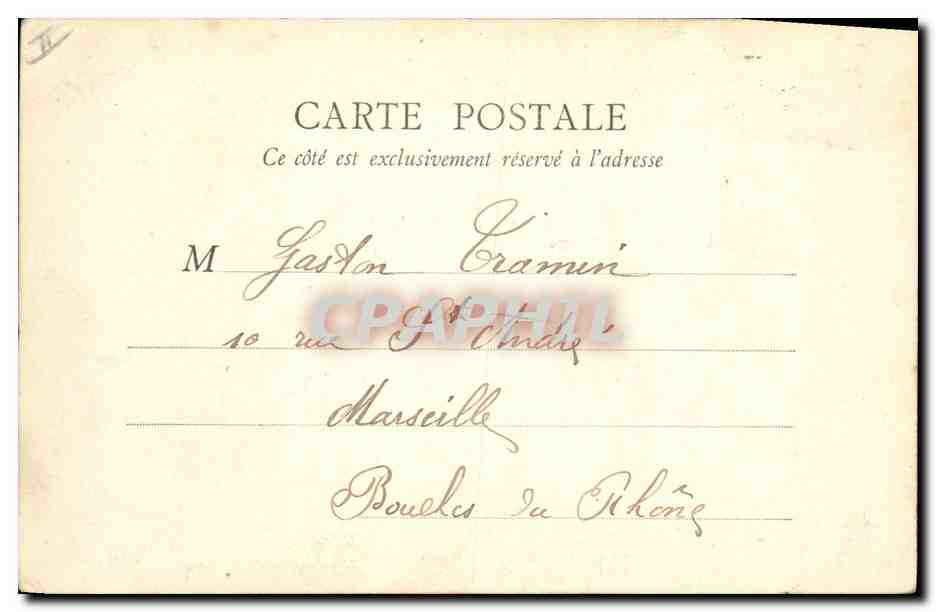 II
CARTE POSTALE
Ce côté est exclusivement réservé à l'adresse
M Gaston Tramin
CPAPHIL
10 rue St André
Marseille
Bouches du Rhône